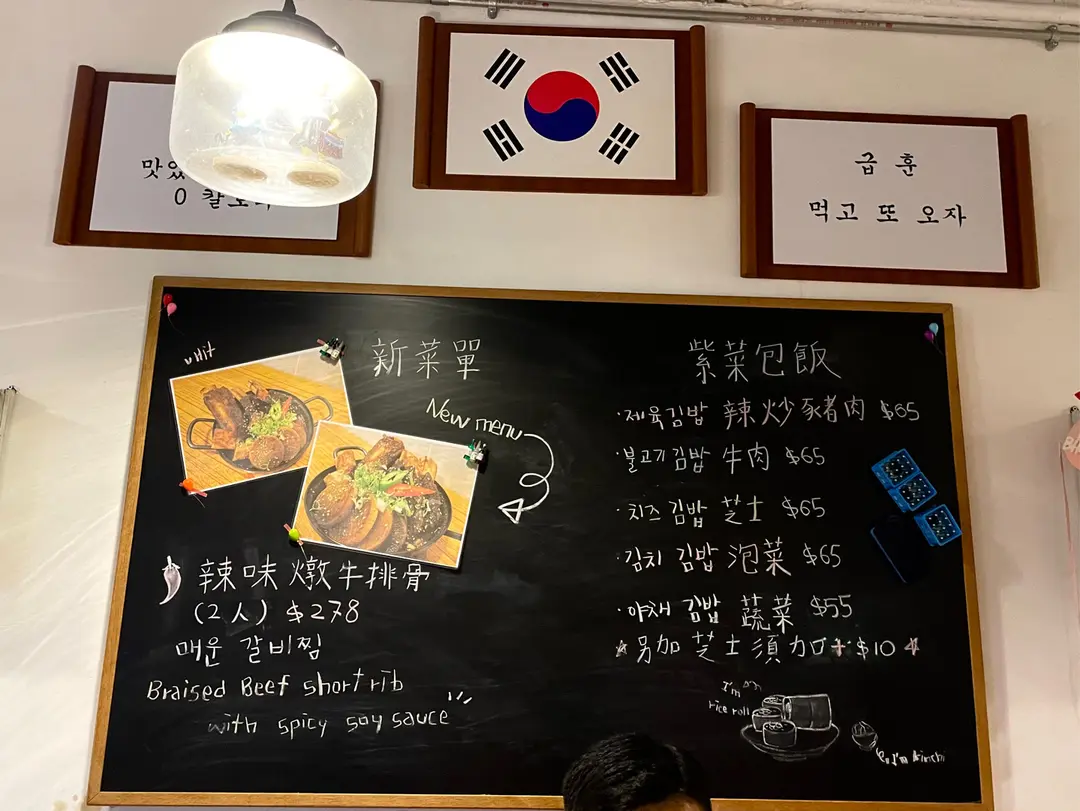 0
급 훈
먹고 또 오자
Hit
新菜單
New menu
辣味燉牛排骨
(2人) $278
매운 갈비찜
Braised Beef short rib
with spicy soy sauce
紫菜包飯
·제육김밥 辣炒豬肉 $65
·불고기김밥 牛肉 $65
·치즈 김밥 芝士 $65
·김치 김밥 泡菜 $65
·야채 김밥 蔬菜 $55
☆另加芝士須加+$10☆
rice roll
I'm kimchi